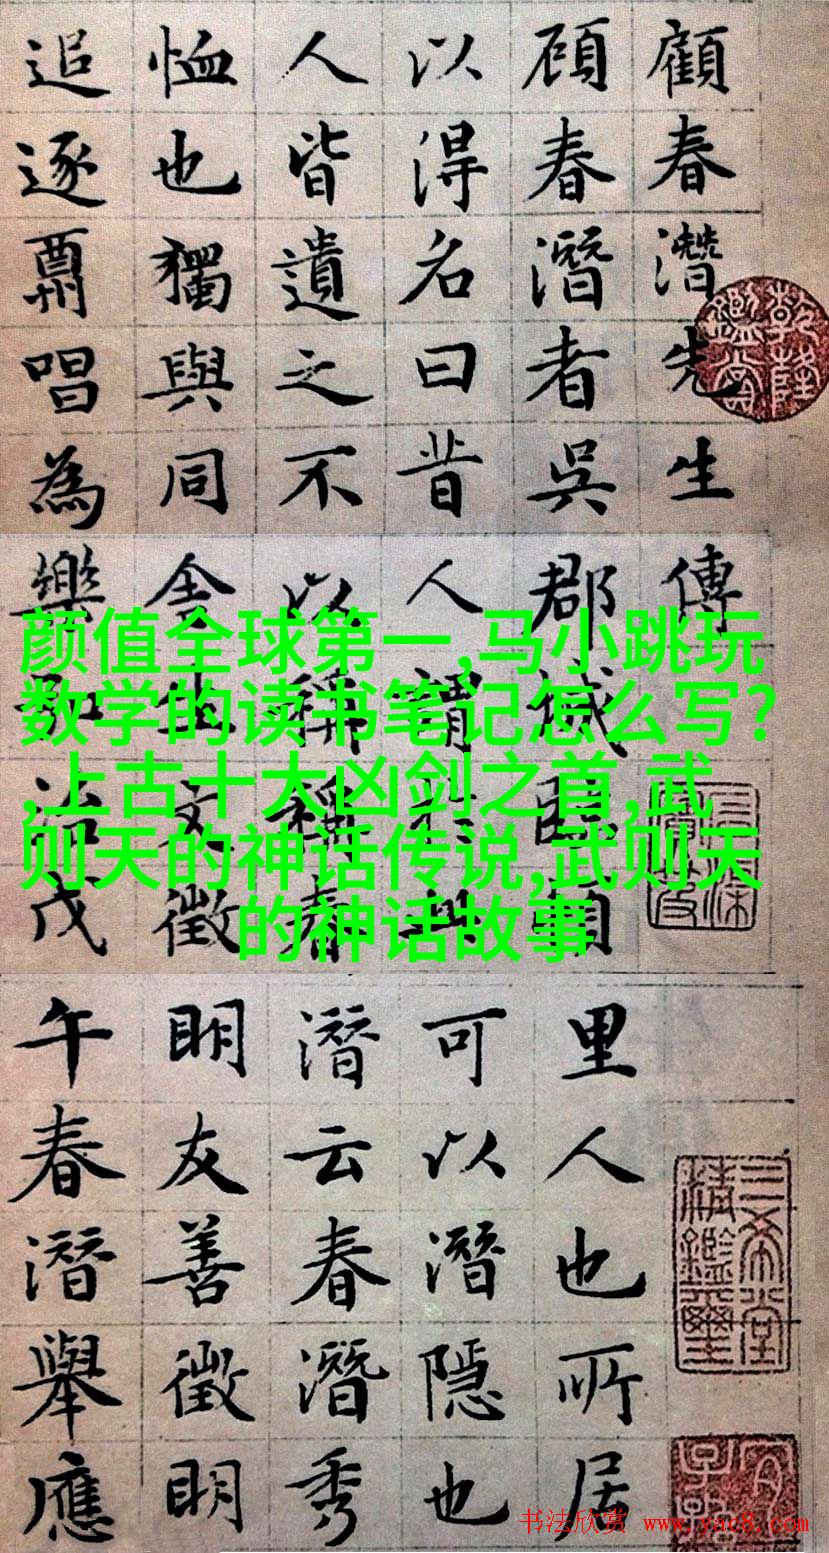 顧春潛先生傳
顾春潛者吳郡城臨頓里人也所居
以得名曰昔人謂於此可以潛隱也
人皆遺之不以稱稱春潛云春潛秀
恤也獨與同舍生文徵明友善徵明
追逐唱為樂治戊午春潛舉應
乾隆鑑賞
三希堂精鑑璽
颜值全球第一,马小跳玩
数学的读书笔记怎么写?
,上古十大凶剑之首,武
则天的神话传说,武则天
的神话故事
书法欣赏 www.yac8.com